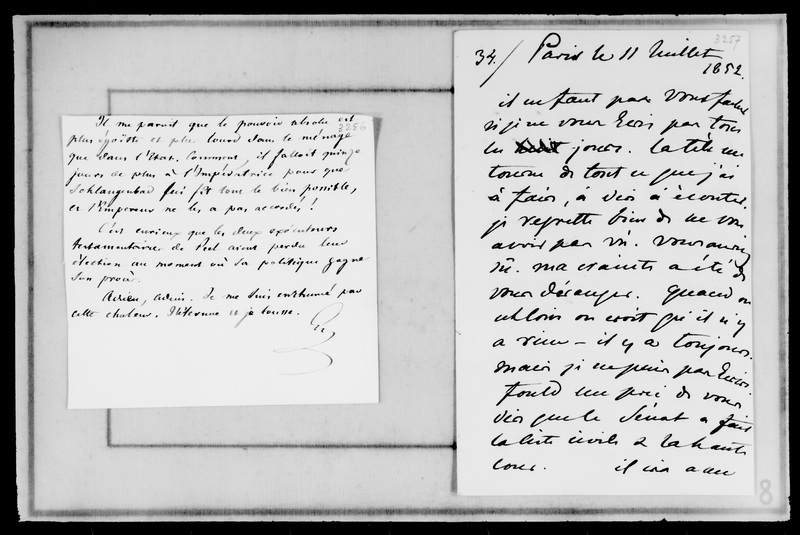 Il me paroit que le pouvoir absolu est
3256
plus égoïste et plus lourd dans le ménage
que dans l'Etat. Comment, il falloit quinze
jours de plus à l'Impératrice pour que
Schlangenbad lui fît tout le bien possible,
et l'Empereur ne les a pas accordés !
C'est curieux que les deux exécuteurs
testamentaires de Peel aient perdu leur
élection au moment où sa politique gagne
son procès.
Adieu, adieu. Je me suis enrhumé par
cette chaleur. J'éternue et je tousse.
3257
34/ Paris le 11 Juillet
1852.
il ne faut pas vous fâcher
si je ne vous écris pas tous
les jours. La tête me
tourne de tout ce que j'ai
à faire, à dire à écouter.
je regrette bien de ne vous
avoir pas vu. vous auriez
ri. ma crainte a été de
vous déranger. quand on
est loin on croit qu'il n'y
a rien - il y a toujours.
mais je ne puis pas écrire
Fould me prie de vous
dire que le Sénat a fait
la liste civile & la haute
cour. il ira
8